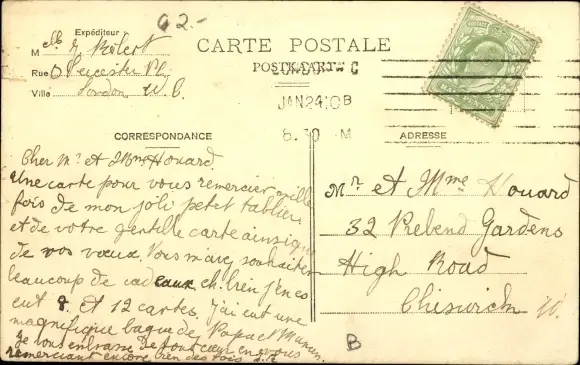 92.-
Expéditeur
Melle Y. Robert
Rue 5 Leicester Pl.
Ville London W.C.
CARTE POSTALE
POSTKAART
LONDON W C
JAN 24 10 B
6.30 M
CORRESPONDANCE
ADRESSE
Cher Mr et Mme Houard
Une carte pour vous remercier mille
fois de mon joli petit tablier
et de votre gentille carte ainsi que
de vos vœux. Vous m'avez souhaiter
beaucoup de cadeaux eh! bien j'en es
eut 8 et 12 cartes. J'ai eut une
magnifique bague de Papa et Maman.
Je vous embrasse de tout cœur en vous
remerciant encore bien des fois
Mr et Mme Houard
32 Rebend Gardens
High Road
Chiswich W.
B